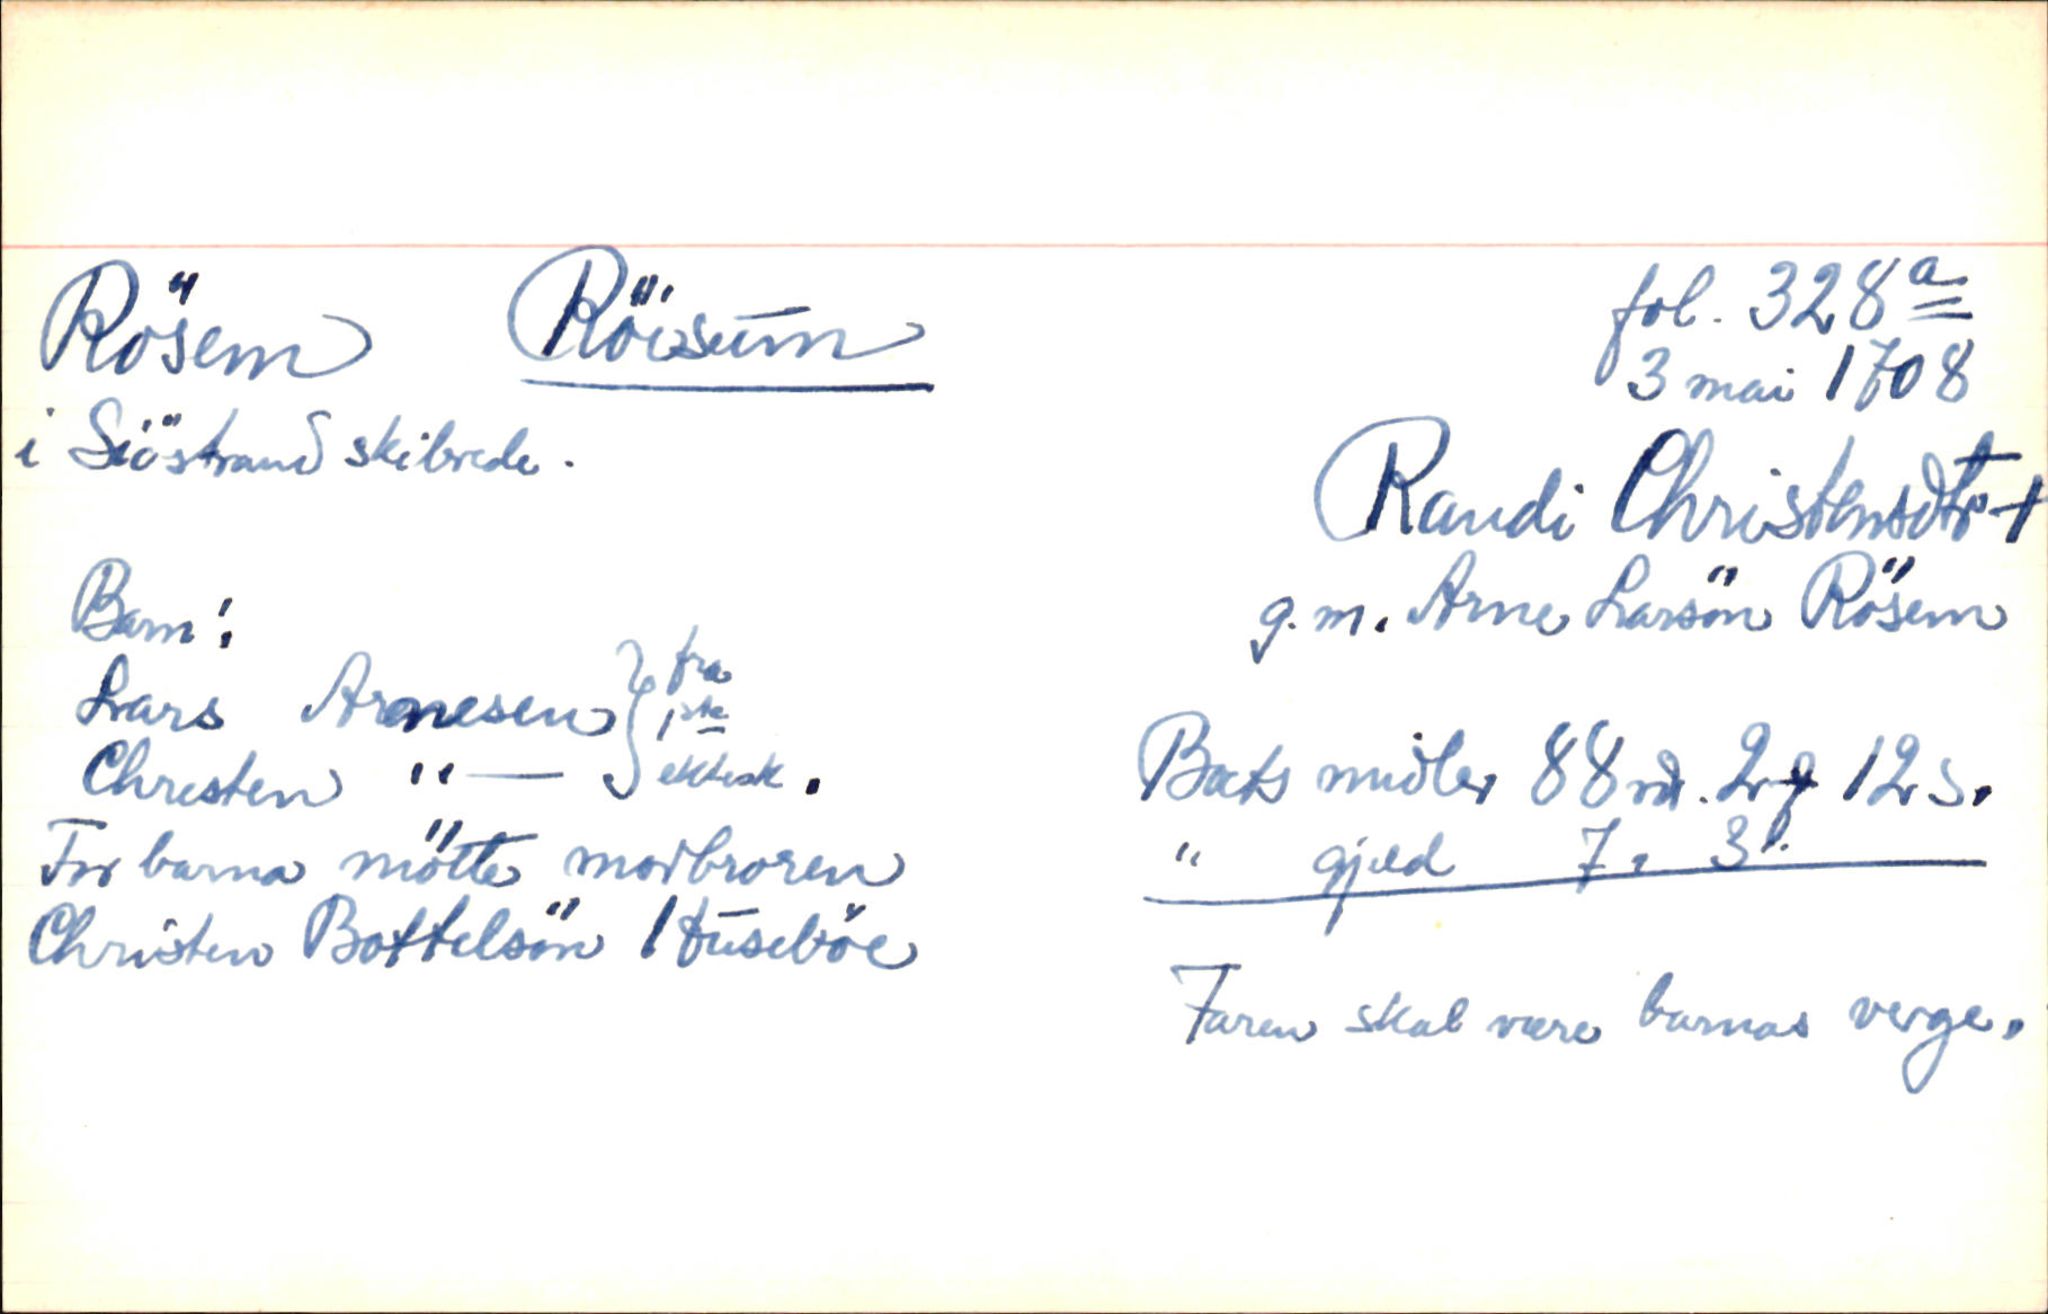 Rösem Röisum
i Siöstrand skibrede.
fol. 328 a
3 mai 1708
Randi Christensdtr +
g. m. Arne Larsön Rösem
Barn:
Lars Arnesen } fra
1ste
Christen "— ektesk.
For barna mötte morbroren
Christen Bottelsön Huseböe
Boets midler 88 rd. 2 12 s.
" gjeld 7, 3
Faren skal være barnas verge.